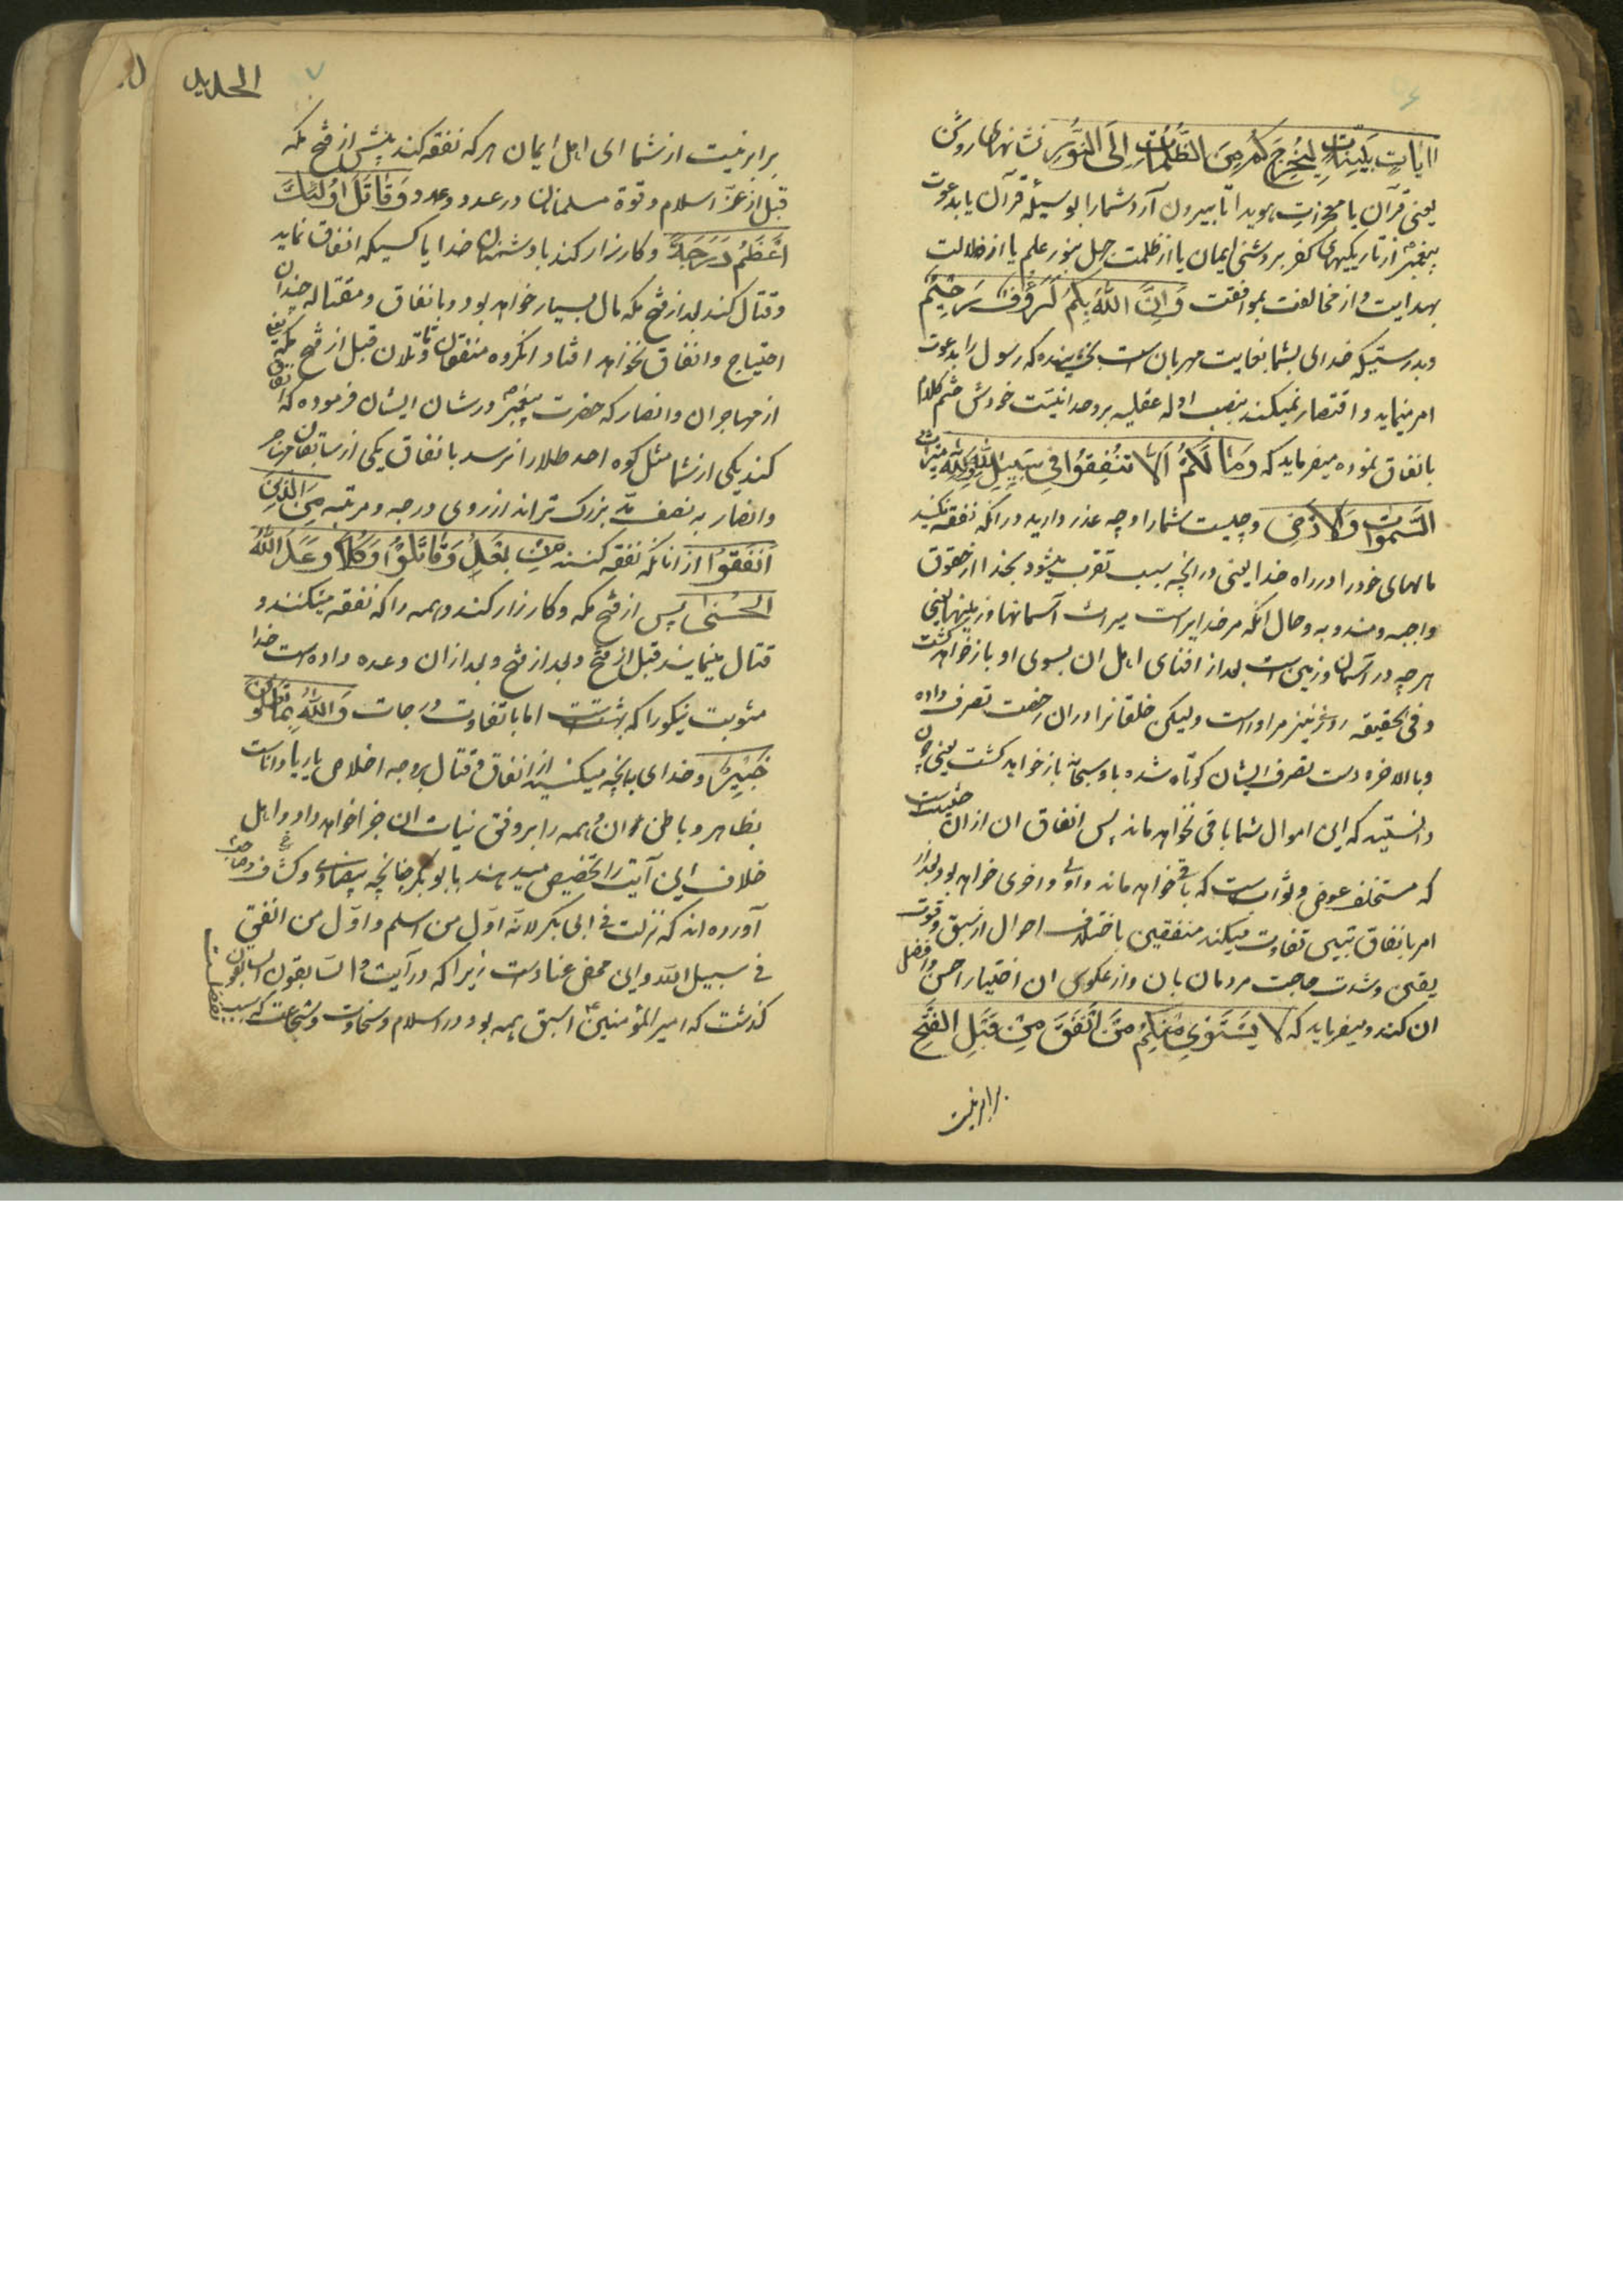 ایاتٍ بَیِّناتٍ لِیُخرِجَکُم مِنَ الظُّلُماتِ اِلَی النُّورِ نشانهای روشن
یعنی قرآن یا معجزات هویدا تا بیرون آرد شما را بوسیلهٔ قرآن یا بدعوت
پیغمبرؐ از تاریکیهای کفر بروشنی ایمان یا از ظلمت جهل بنور علم یا از ظلالت
بهدایت و از مخالفت بموافقت وَ اِنَّ اللّٰهَ بِکُم لَرَؤُفٌ رَحیمٌ
وبدرستیکه خدای بشما بغایت مهربان است بخشنده که رسول را بدعوت
امر مینماید و اقتصار نمیکند بنصب ادله عقلیه بر وحدانیت خودش ختم کلام
بانفاق نموده میفرماید که وَمَا لَکُم اَلّا تُنفِقُوا فی سَبیلِ اللّٰهِ وَلِلّٰهِ میراثُ
السَّمٰواتِ وَالاَرضِ وچیست شما را و چه عذر دارید در آنکه نفقه نکنید
مالهای خود را در راه خدا یعنی در آنچه سبب تقرب میشود بخدا از حقوق
واجبه و مندوبه و حال آنکه مر خدایراست میراث آسمانها و زمینها یعنی
هر چه در آسمان و زمین است بعد از افنای اهل ان بسوی او باز خواهد گشت
و فی الحقیقه روز نیز مر او راست ولیکن خلقانرا دران رخصت تصرف داده
و بالاخره دست تصرف ایشان کوتاه شده باو سبحانه باز خواهد کشت یعنی چون
دانستید که این اموال شما باقی نخواهد ماند پس انفاق ان ازان حیثیت
که مستخلف عوض و ثواب است که باقی خواهد ماند اولی و احری خواهد بود و بعد از
امر بانفاق تبیین تفاوت میکند منفقین باختلاف احوال از سبق و قوت
یقین و شدت حاجت مردمان بان و از عکوس ان اختیار احسن و افضل
ان کند و میفرماید که لا یَستَوی مِنکُم مَن اَنفَقَ مِن قَبلِ الفَتحِ
برابر نیست
الحدید
۷
برابر نیست از شما ای اهل ایمان هر که نفقه کند پیش از فتح مکه
قبل از عزّ اسلام و قوة مسلمانان در عدد و عدد وَ قاتَلَ اُولٰئِکَ
اَعظَمُ دَرَجَةً و کارزار کند با دشمنان خدا با کسیکه انفاق نماید
و قتال کند بعد از فتح مکه مال بسیار خواهد بود و بانفاق و مقتاله چندان
احتیاج و انفاق نخواهد افتاد انگروه منفقان و قاتلان قبل از فتح مکه
از مهاجران و انصار که حضرت پیغمبرؐ در شان ایشان فرموده که انفاق
کند یکی از شما مثل کوه احد طلا را نرسد بانفاق یکی از سابقان مهاجر
وانصار به نصف مد بزرک تراند از روی درجه و مرتبه مِنَ الَّذینَ
اَنفَقُوا از انانکه نفقه کنند مِن بَعدُ وَ قاتَلُوا وَ کُلّاً وَعَدَ اللّٰهُ
الحُسنیٰ پس از فتح مکه و کارزار کنند و همه را که نفقه میکنند و
قتال مینمایند قبل از فتح و بعد از فتح و بعد ازان وعده داده است خدا
مثوبت نیکو را که بهشت است اما با تفاوت درجات وَ اللّٰهُ بِما تَعمَلُونَ
خَبیرٌ و خدای بانچه میکنید از انفاق و قتال بر وجه اخلاص یا ریا داناست
بظاهر و باطن ان و همه را بر وفق نیات ان جزا خواهد داد و اهل
خلاف این آیت را تخصیص میدهند بابوبکر چنانچه بیضاوی و کشاف
آورده اند که نزلت فی ابی بکر لانه اول من اسلم و اول من انفق
فی سبیل الله و این محض عناد است زیرا که در آیت و السابقون السابقون
گذشت که امیر المؤمنینؑ اسبق همه بود در اسلام و سخاوت و شجاعت که سبب